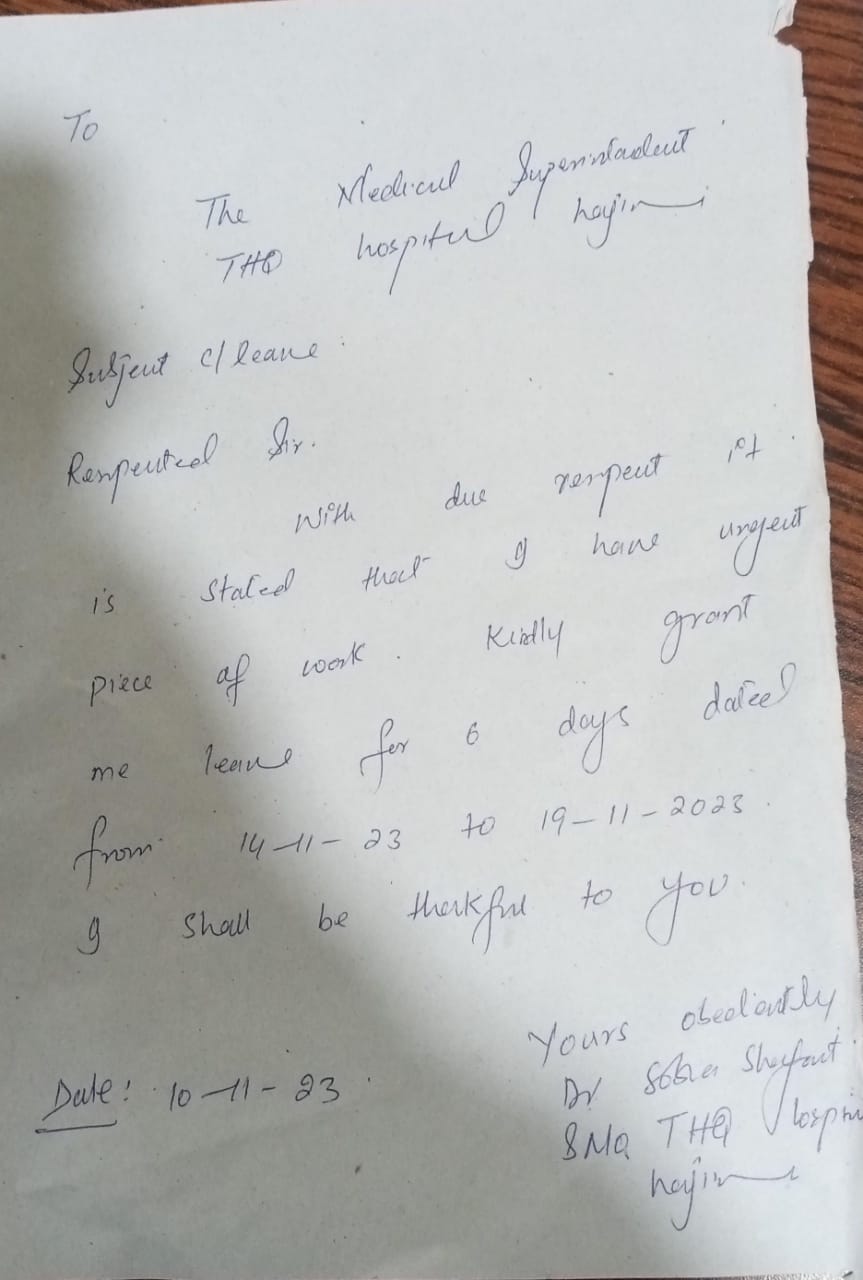 To
The Medical Superintadent
THQ hospital hajira
Subject c/leave
Respected Sir.
With due respect it
is stated that I have urgent
piece of work. Kidly grant
me leave for 6 days dated
from 14-11-23 to 19-11-2023.
I shall be thankful to you.
Yours obediantly
Date: 10-11-23.
Dr Shafaut
SMO THQ hospi
hajira